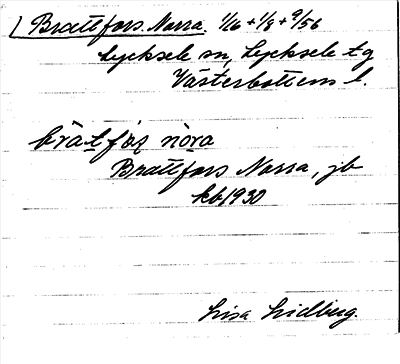 Brattfors, Norra. 1/16 + 1/8 + 9/56
Lycksele sn, Lycksele tg
Västerbottens l.
bràtfòṣ nòra
Brattfors Norra, jb
kb1930
Lisa Lidberg.